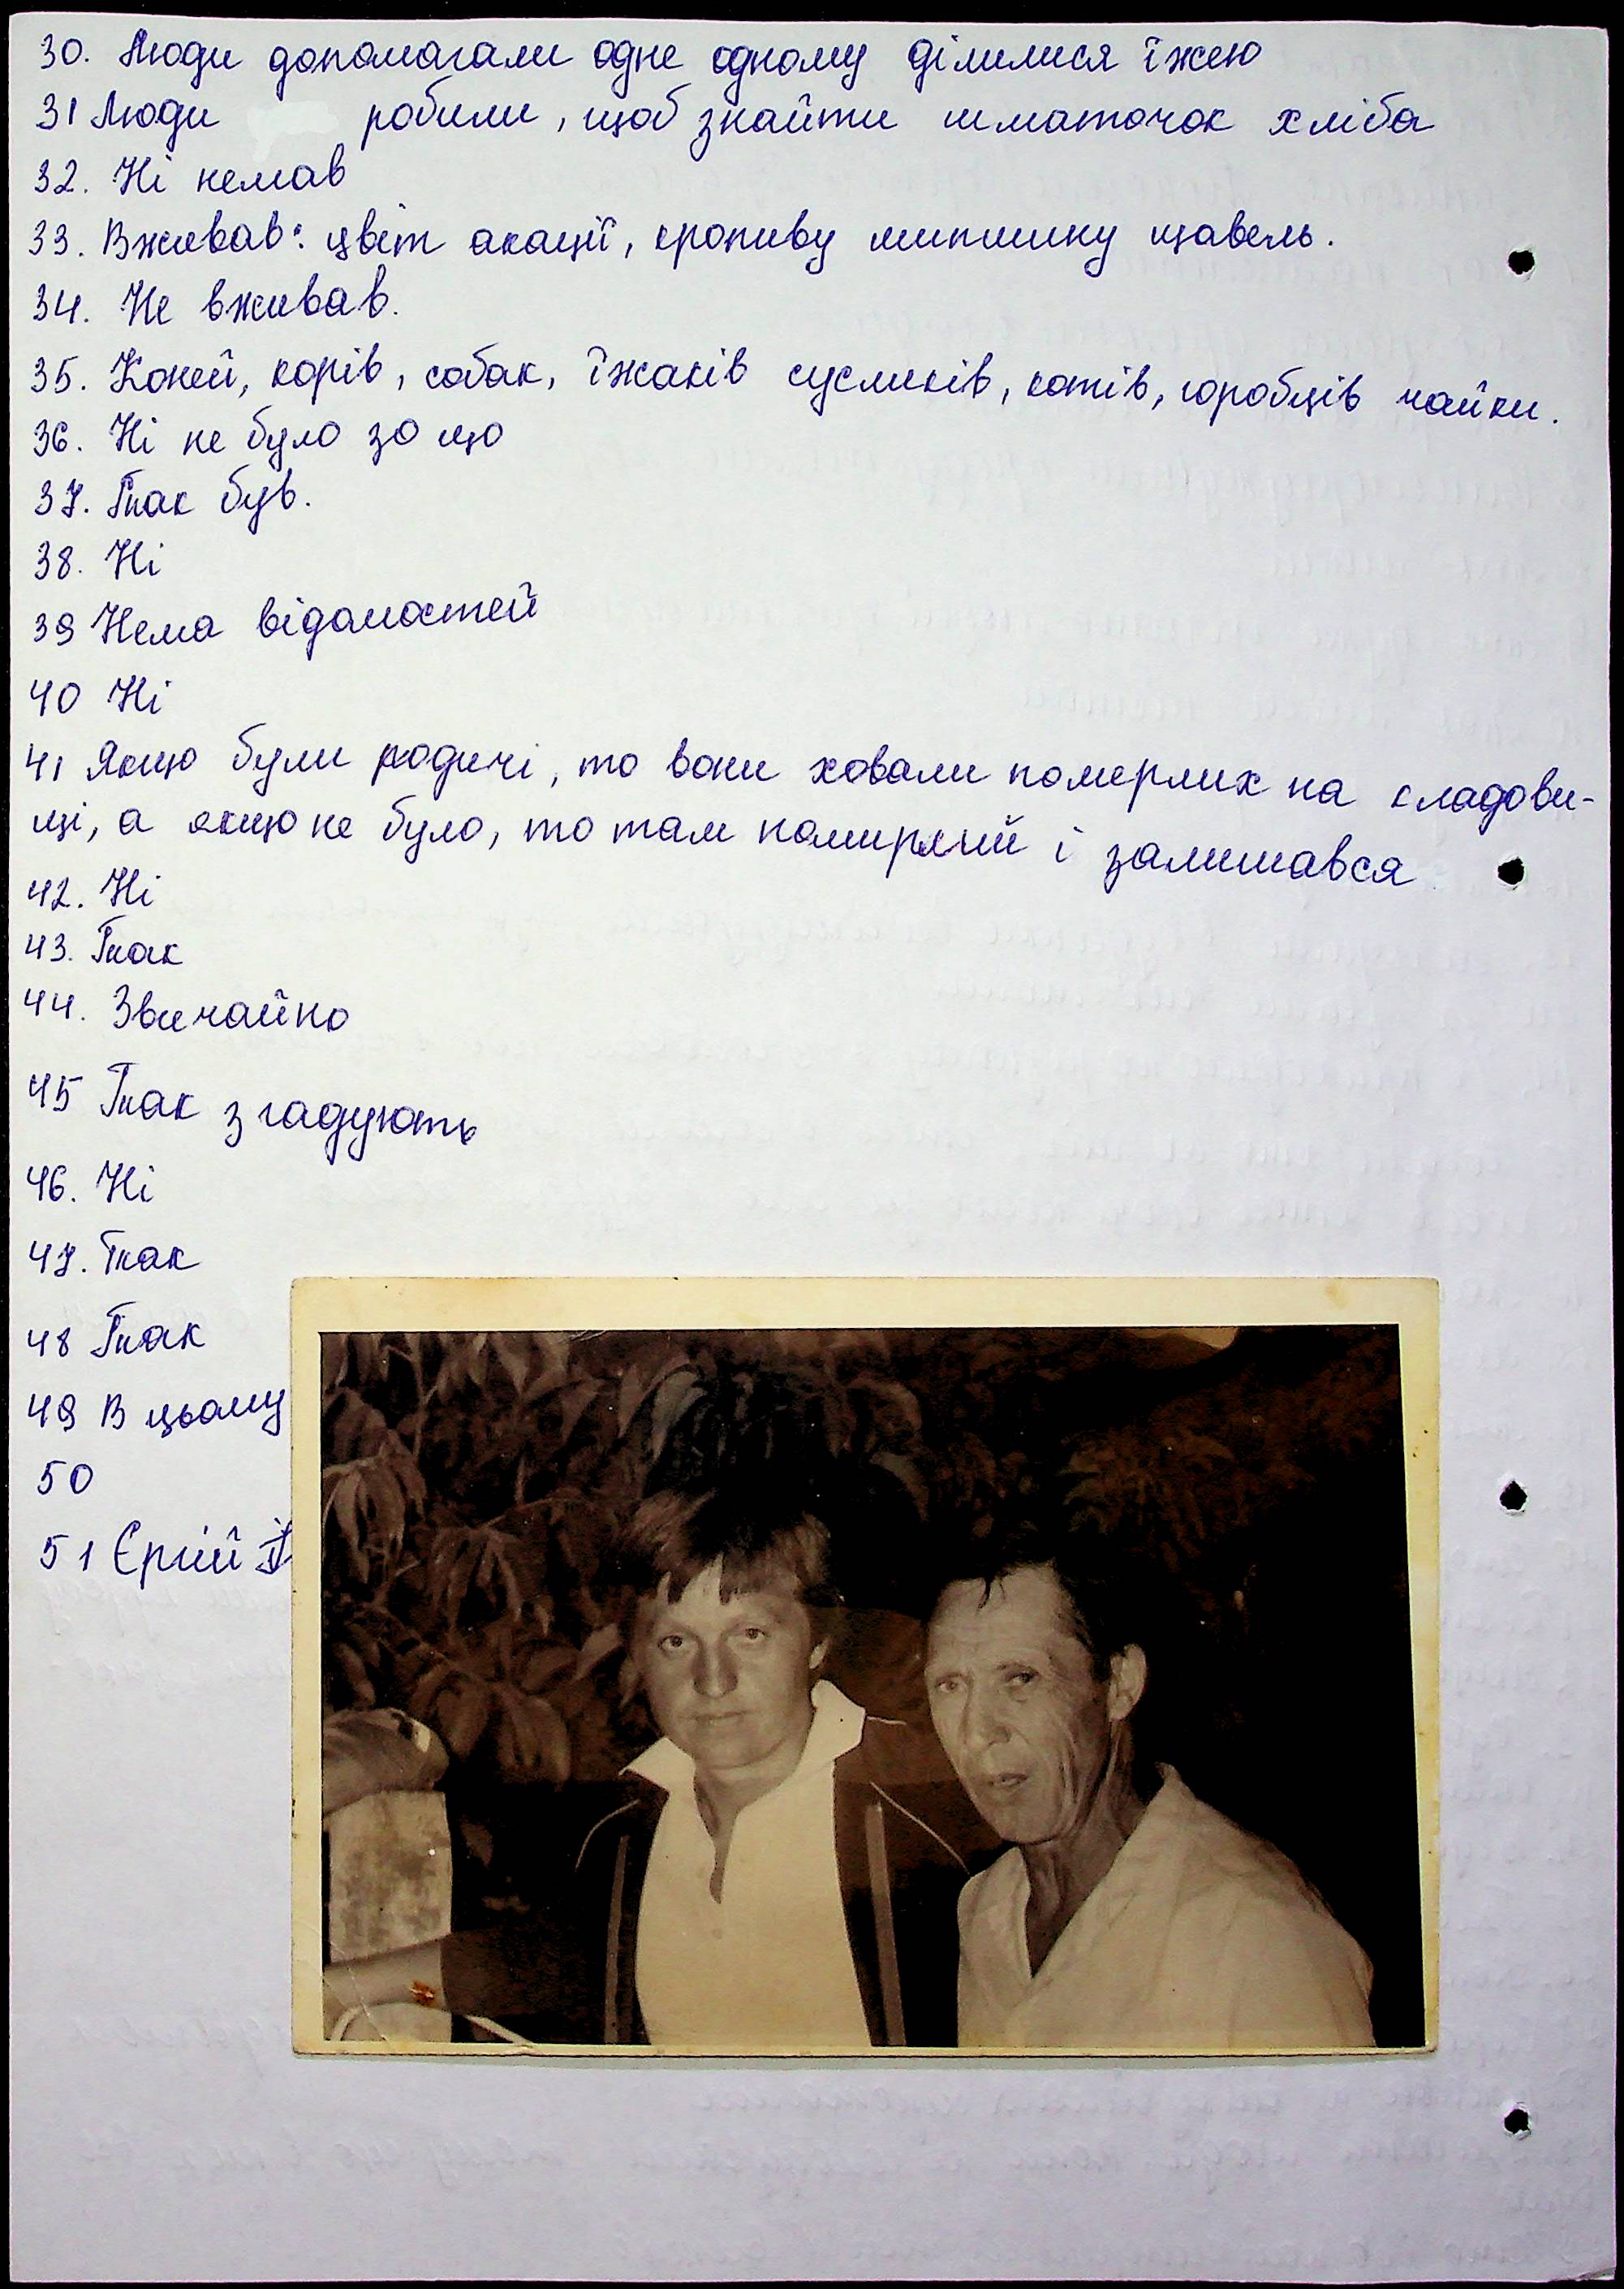 30. Люди допомагали одне одному ділилися їжею
31 Люди робили, щоб знайти шматочок хліба
32. Ні немав
33. Вживав: цвіт акації, кропиву шипшину щавель.
34. Не вживав.
35. Коней, корів, собак, їжаків сусликів, котів, горобців чайки.
36. Ні не було зо що
37. Так був.
38. Ні
39 Нема відомостей
40 Ні
41 Якщо були родичі, то вони ховали померлих на кладови-
щі, а якщо не було, то там помирлий і залишався
42. Ні
43. Так
44. Звичайно
45 Так згадують
46. Ні
47. Так
48 Так
49 В цьому
50
51 Єргій